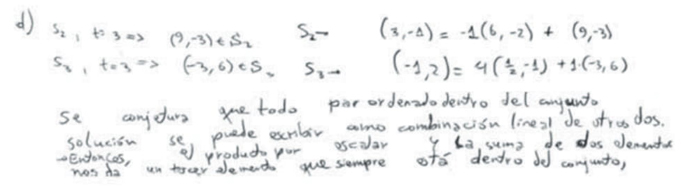 d) S₂, t=3 => (9,-3) ∈ S₂ S₂→ (3,-1) = -1(6,-2) + (9,-3)
S₃, t=3 => (-3,6) ∈ S₃ S₃→ (-1,2) = 4(½,-1) + 1·(-3,6)
Se conjetura que todo par ordenado dentro del conjunto
solución se puede escribir como combinación lineal de otros dos.
→Entonces, el producto por escalar y la suma de dos elementos
nos da un tercer elemento que siempre está dentro del conjunto,